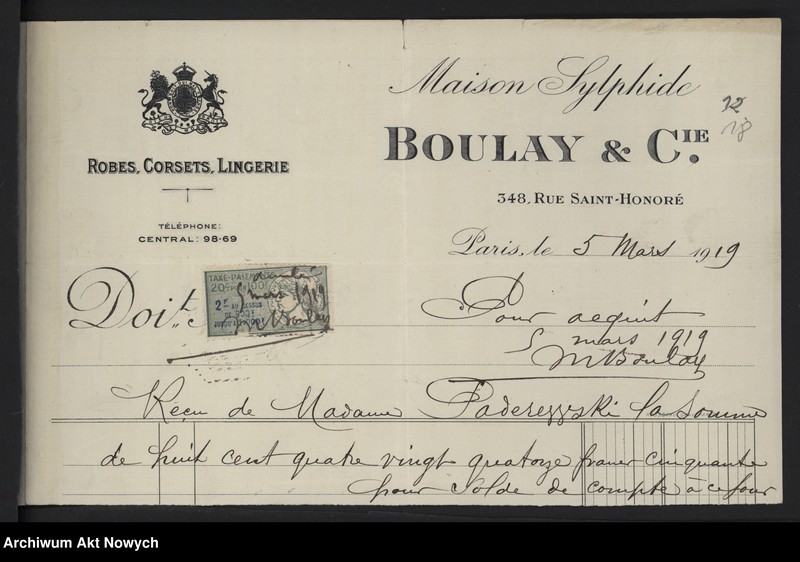 Maison Sylphide
BOULAY & CIE.
348, RUE SAINT-HONORÉ
ROBES, CORSETS, LINGERIE
TÉLÉPHONE:
CENTRAL: 98-69
Paris, le 5 Mars 1919
Doit
TAXE-
2F
5 mars 1919
Boulay
Pour acquit
5 mars 1919
MBoulay
Reçu de Madame Paderezvski la somme
de huit cent quatre vingt quatorze francs cinquante
pour solde de compte à ce jour
Archiwum Akt Nowych